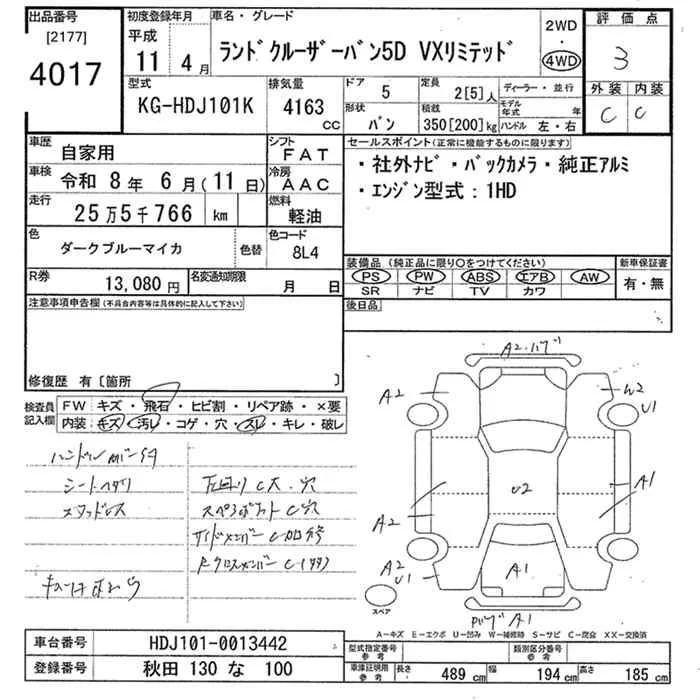 出品番号 初度登録年月 車名・グレード 2WD・4WD 評価点
[2177] 平成
4017 11 4月 ランドクルーザーバン5D VXリミテッド 3
型式 排気量 ドア 5 定員 2[5]人 ディーラー・並行 外装 内装
KG-HDJ101K 4163cc 形状 バン 積載 350[200]kg モデル年式 年 ハンドル 左・右 C C
車歴 自家用 シフト FAT セールスポイント(正常に機能するものに限ります)
車検 令和 8年 6月(11日) 冷房 AAC ・社外ナビ・バックカメラ・純正アルミ
走行 25万5千766 km 燃料 軽油 ・エンジン型式:1HD
色 ダークブルーマイカ 色替 色コード 8L4
装備品(純正品に限り○をつけてください) 新車保証書
R券 13,080円 名変通知期限 月 日 PS PW ABS エアB AW 有・無
SR ナビ TV カワ
注意事項申告欄(不具合内容等は具体的に記入して下さい) 後日品
修復歴 有〔箇所 〕
検査員記入欄 FW キズ・飛石・ヒビ割・リペア跡・×要
内装 キズ・汚レ・コゲ・穴・スレ・キレ・破レ
シートヘタリ 下回りC大・穴
スタッドレス C穴
サイドメンバーC加修
A2
A2
W2
U1
A2
A1
U2
A2
U1
A1
A1
スペア
A-キズ E-エクボ U-凹み W-補修跡 S-サビ C-腐食 XX-交換済
車台番号 HDJ101-0013442 型式指定番号参考 類別区分番号参考
登録番号 秋田 130 な 100 車庫証明用参考 長さ 489cm 幅 194cm 高さ 185cm